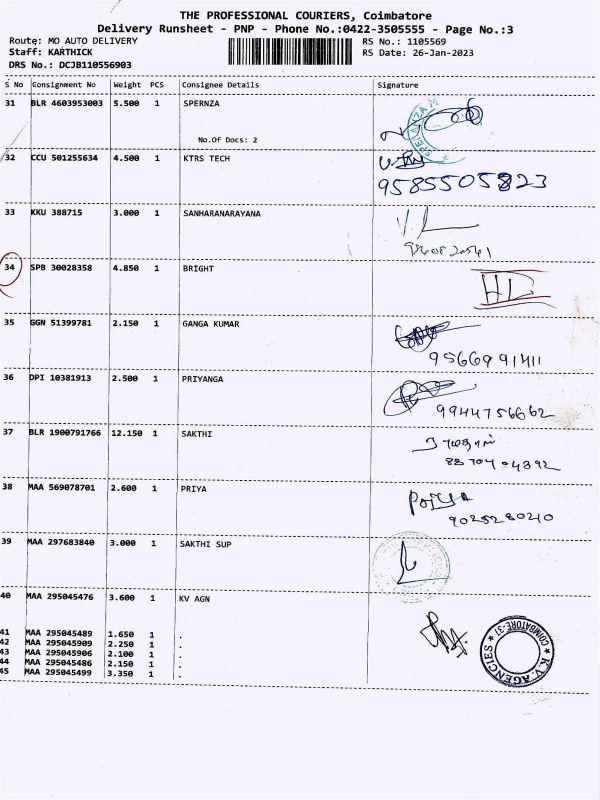 THE PROFESSIONAL COURIERS, Coimbatore
Delivery Runsheet - PNP - Phone No.:0422-3505555 - Page No.:3
Route: MO AUTO DELIVERY RS No.: 1105569
Staff: KARTHICK RS Date: 26-Jan-2023
DRS No.: DCJB110556903
S No Consignment No Weight PCS Consignee Details Signature
31 BLR 4603953003 5.500 1 SPERNZA
No.Of Docs: 2
32 CCU 501255634 4.500 1 KTRS TECH
9585505823
33 KKU 388715 3.000 1 SANHARANARAYANA
34 SPB 30028358 4.850 1 BRIGHT
35 GGN 51399781 2.150 1 GANGA KUMAR
9566991411
36 DPI 10381913 2.500 1 PRIYANGA
9944756662
37 BLR 1900791766 12.150 1 SAKTHI
38 MAA 569078701 2.600 1 PRIYA
Priya
9025280210
39 MAA 297683840 3.000 1 SAKTHI SUP
40 MAA 295045476 3.600 1 KV AGN
41 MAA 295045489 1.650 1 .
42 MAA 295045909 2.250 1 .
43 MAA 295045906 2.100 1 .
44 MAA 295045486 2.150 1 .
45 MAA 295045499 3.350 1 .
K.V. AGENCIES ★ COIMBATORE-37 ★